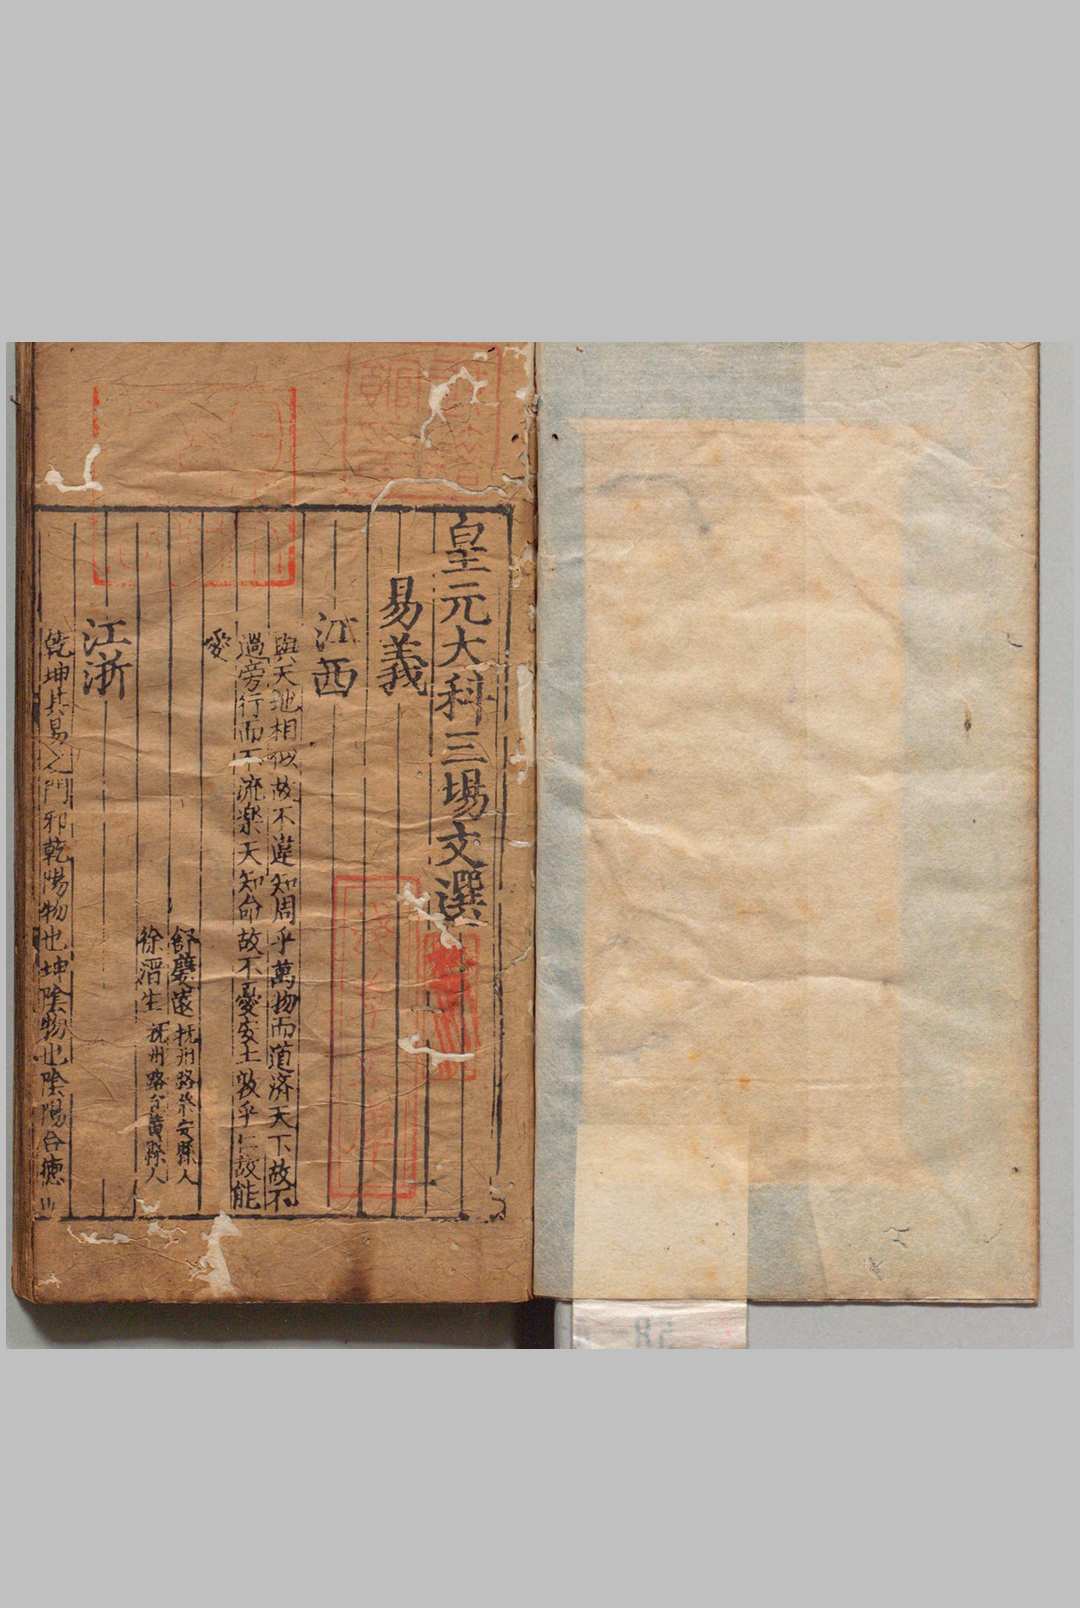 皇元大科三場文選
易義
江西
與天地相似故不違知周乎萬物而道済天下故不
過旁行而不流楽天知命故不憂安土敦乎仁故能
愛
舒慶遠 抚州路崇安縣人
徐淵生 抚州路分宜縣人
江浙
乾坤其易之門邪乾陽物也坤陰物也陰陽合德